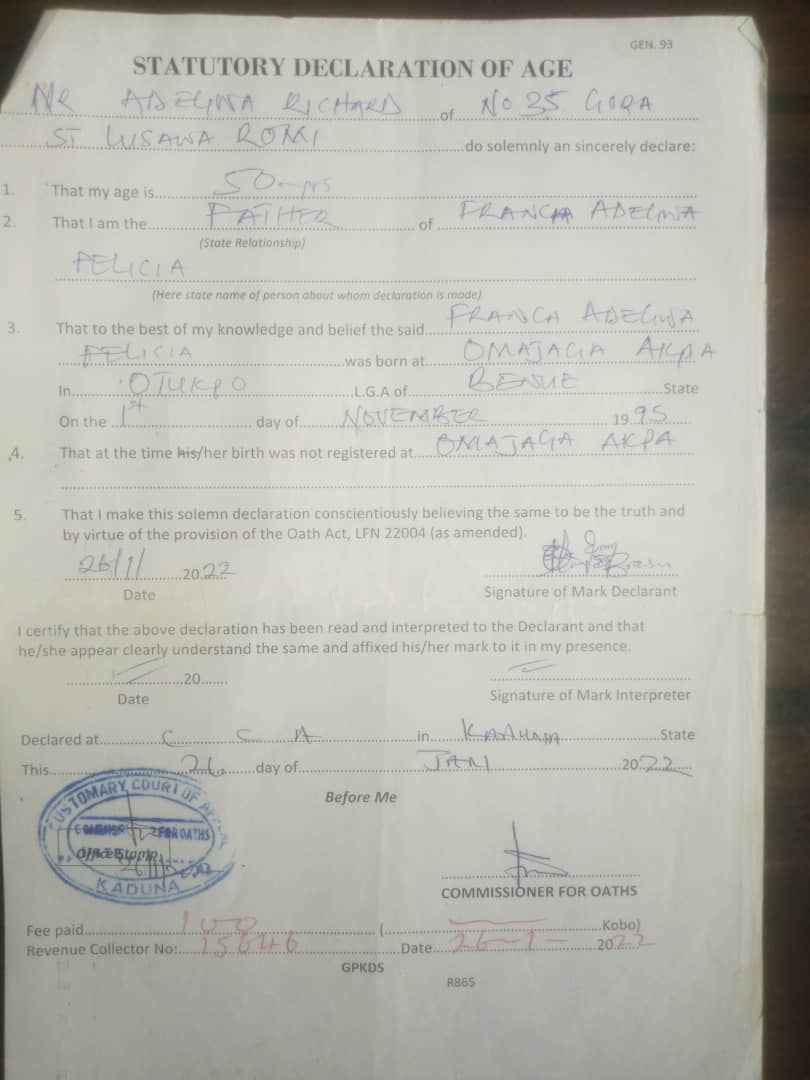 GEN. 93
STATUTORY DECLARATION OF AGE
MR ADEGWA RICHARD of No 35 GORA
ST ROMI do solemnly an sincerely declare:
1. That my age is 50 yrs
2. That I am the FATHER of FRANCA ADEGWA
(State Relationship)
FELICIA
(Here state name of person about whom declaration is made)
3. That to the best of my knowledge and belief the said FRANCA ADEGWA
FELICIA was born at OMAJAGA AKPA
In OTUKPO L.G.A of BENUE State
On the 1st day of NOVEMBER 1995
4. That at the time his/her birth was not registered at OMAJAGA AKPA
5. That I make this solemn declaration conscientiously believing the same to be the truth and
by virtue of the provision of the Oath Act, LFN 22004 (as amended).
26/1/ 2022
Date
Signature of Mark Declarant
I certify that the above declaration has been read and interpreted to the Declarant and that
he/she appear clearly understand the same and affixed his/her mark to it in my presence.
20
Date
Signature of Mark Interpreter
Declared at C C A in KADUNA State
This 26 day of JAN 2022
Before Me
CUSTOMARY COURT OF APPEAL
FOR OATHS
Office Stamp
KADUNA
COMMISSIONER FOR OATHS
Fee paid 100 ( Kobo)
Revenue Collector No: 15846 Date 26-1- 2022
GPKDS
R865